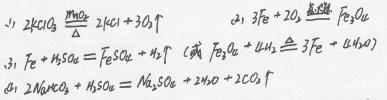 (1) 2KClO₃ =MnO₂/△= 2KCl+3O₂↑ (2) 3Fe+2O₂ =点燃= Fe₃O₄
(3) Fe+H₂SO₄=FeSO₄+H₂↑ (或 Fe₃O₄+4H₂ =△= 3Fe+4H₂O)
(4) 2NaHCO₃+H₂SO₄=Na₂SO₄+2H₂O+2CO₂↑